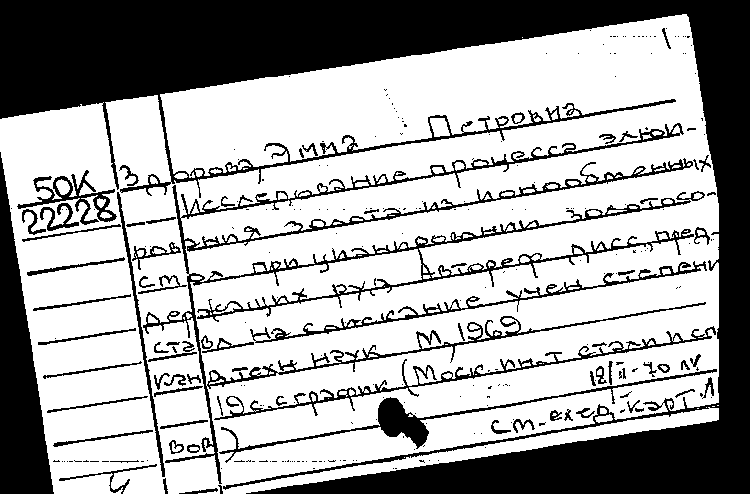 1
50К
22228
Здорова, Эмма Петровна
Исследование процесса элюи-
рования золота из ионообменных
смол при цианировании золотосо-
держащих руд Автореф дисс, пред-
ставл на соискание учен степени
канд. техн наук М, 1969.
19 с. с график (Моск. ин-т стали и спл
вов)
12/II-70
ст-